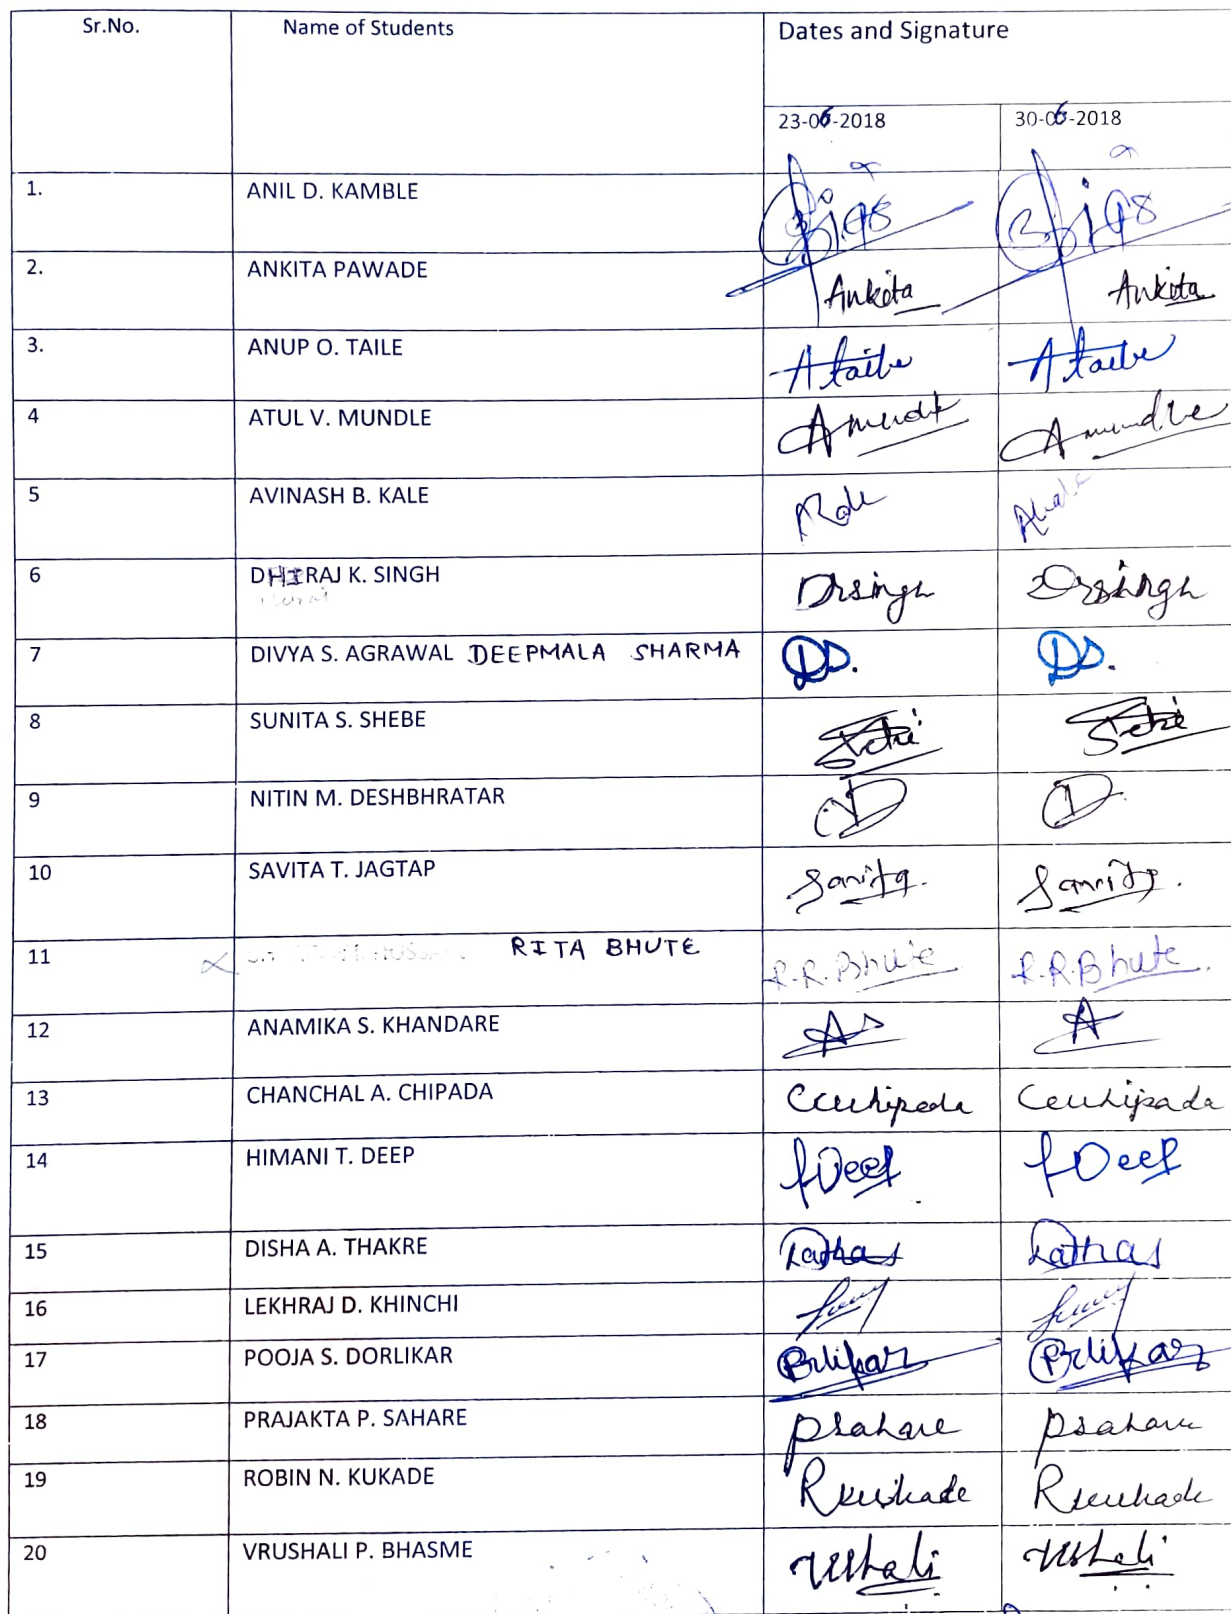 Sr.No. Name of Students Dates and Signature
23-06-2018 30-06-2018
1. ANIL D. KAMBLE
2. ANKITA PAWADE Ankita Ankita
3. ANUP O. TAILE Ataile Ataile
4 ATUL V. MUNDLE Amundle Amundle
5 AVINASH B. KALE
6 DHIRAJ K. SINGH Drsingh Drsingh
7 DIVYA S. AGRAWAL DEEPMALA SHARMA DS. DS.
8 SUNITA S. SHEBE
9 NITIN M. DESHBHRATAR D D
10 SAVITA T. JAGTAP
11 RITA BHUTE R.R.Bhute R.R.Bhute
12 ANAMIKA S. KHANDARE As A
13 CHANCHAL A. CHIPADA
14 HIMANI T. DEEP Deep Deep
15 DISHA A. THAKRE
16 LEKHRAJ D. KHINCHI
17 POOJA S. DORLIKAR
18 PRAJAKTA P. SAHARE Psahare Psahare
19 ROBIN N. KUKADE Rkukade Rkukade
20 VRUSHALI P. BHASME